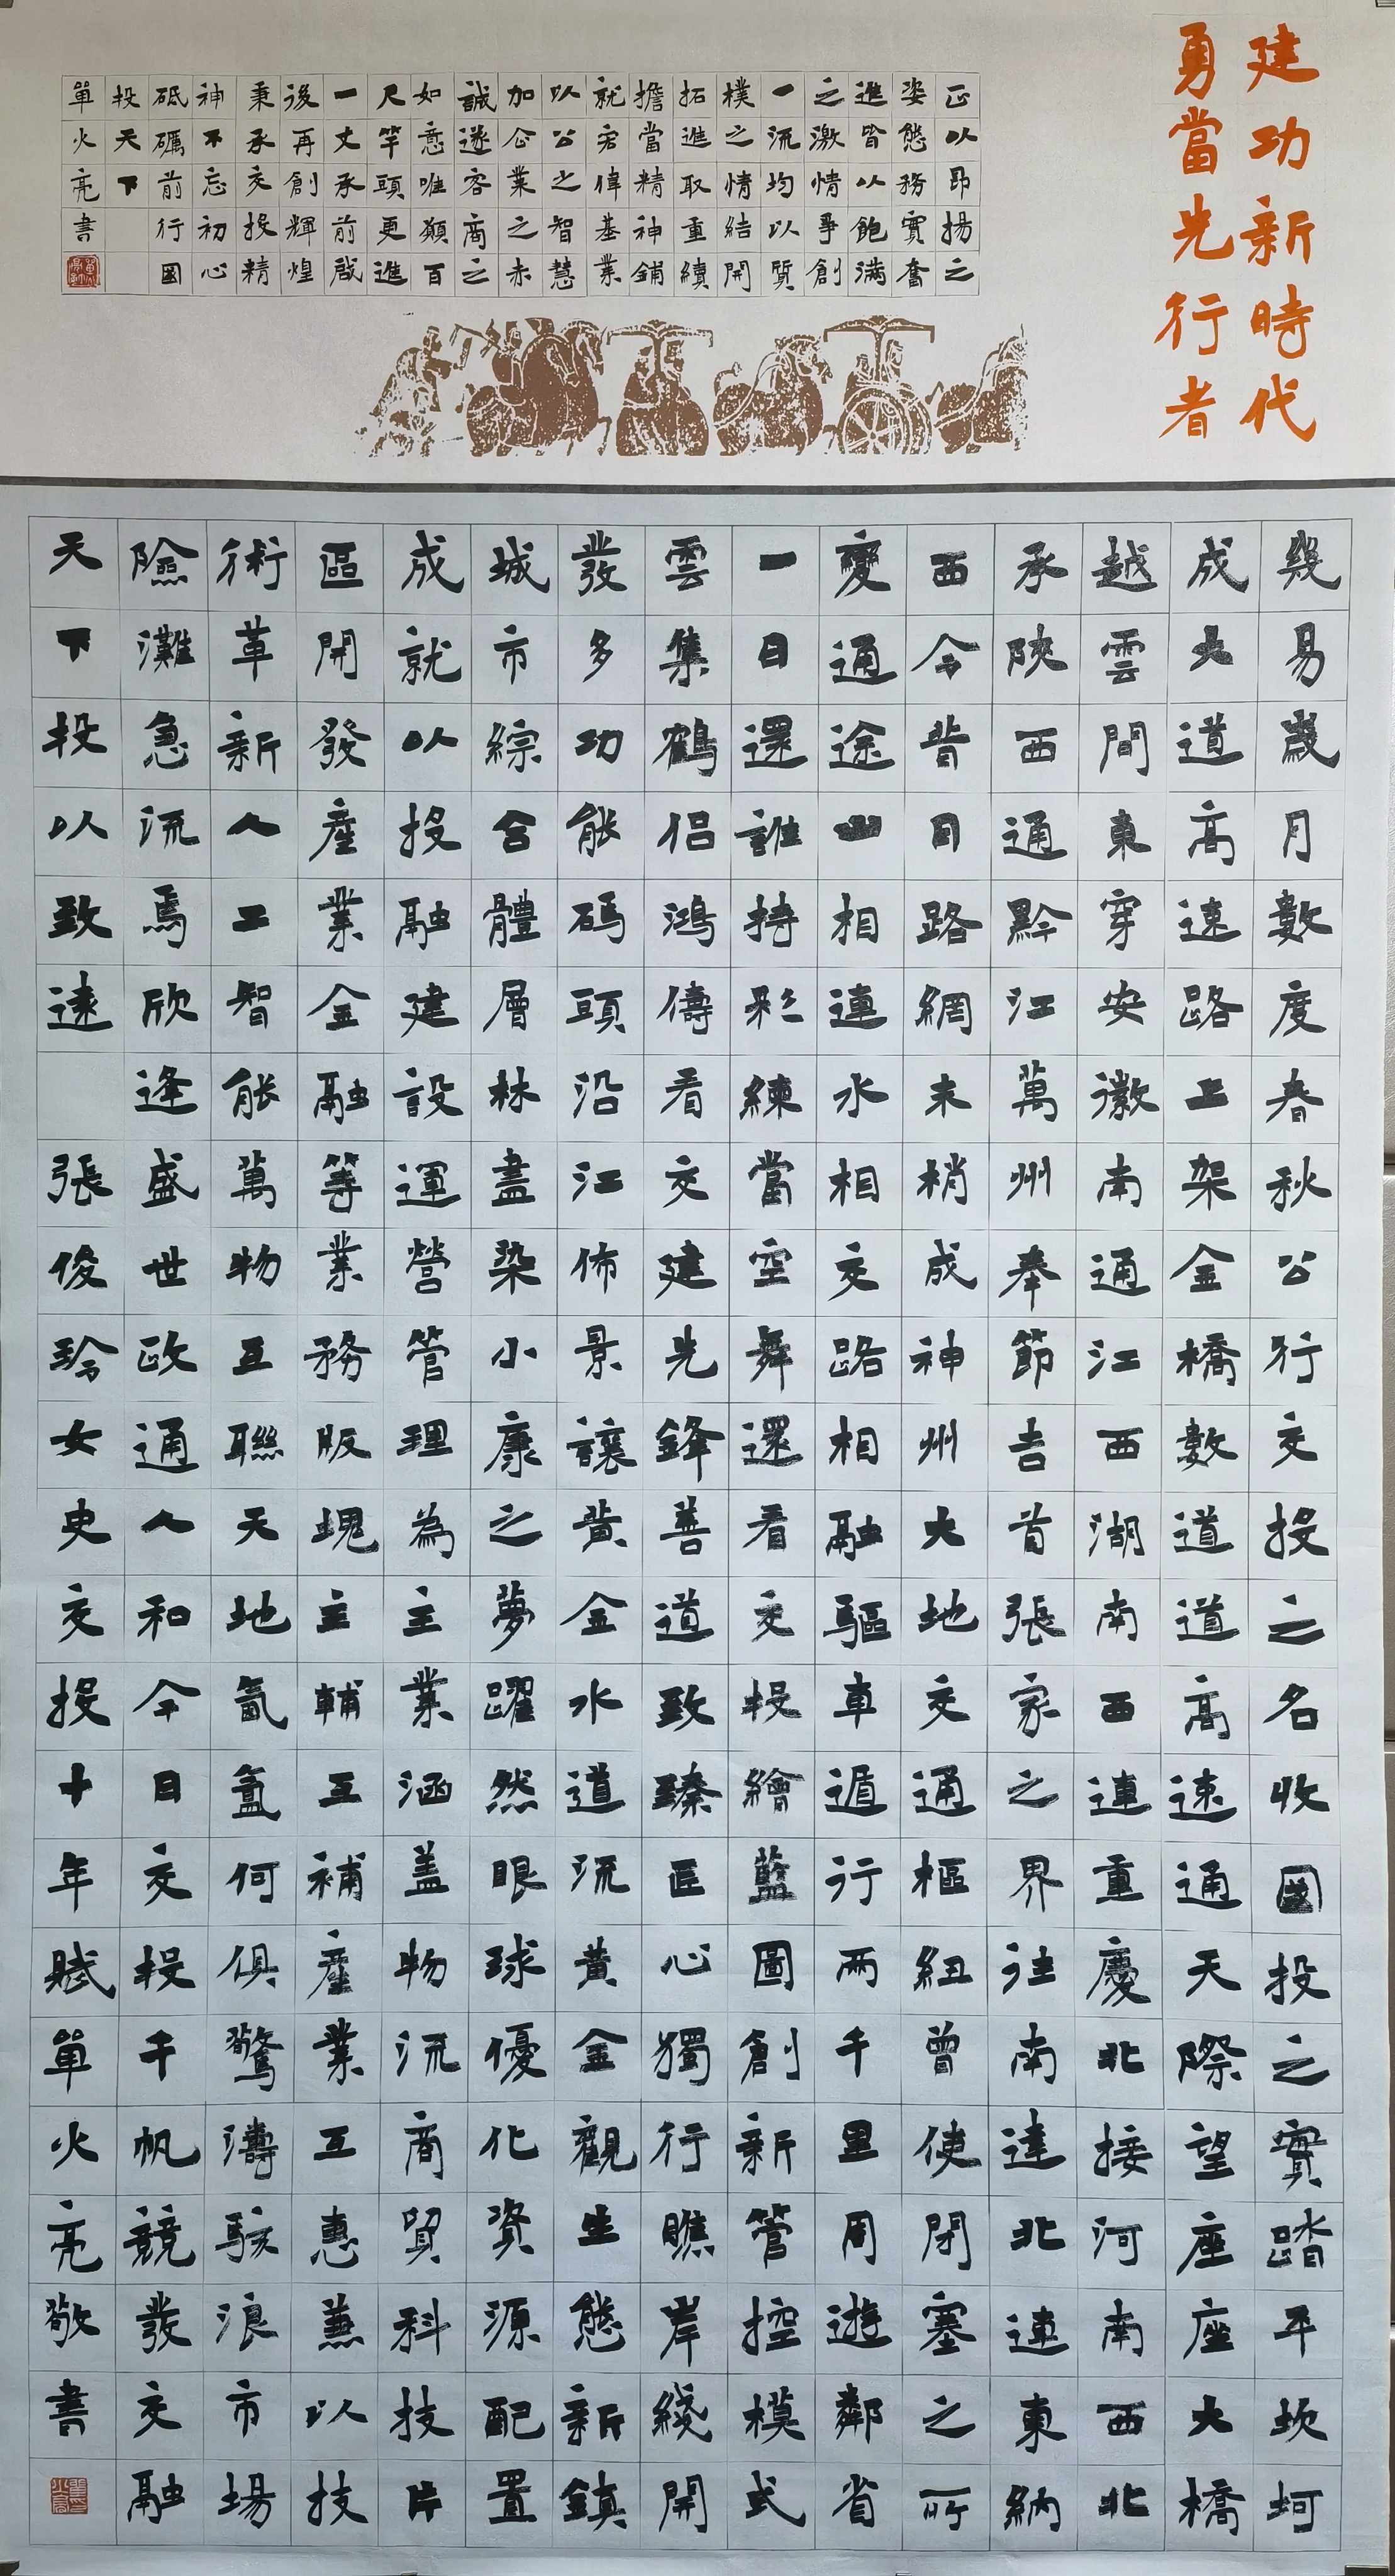 建功新時代
勇當先行者
正以昂揚之
姿態務實奮
進皆以飽滿
之激情爭創
一流均以質
樸之情結開
拓進取重續
擔當精神鋪
就宏偉基業
以公之智慧
加企業之赤
誠遂容商之
如意唯願百
尺竿頭更進
一丈承前啟
後再創輝煌
秉承交投精
神不忘初心
砥礪前行國
投天下
單火亮書
幾易歲月數度春秋公行交投之名收國投之實踏平坎坷
成大道高速路上架金橋數道道高速通天際望座座大橋
越雲間東穿安徽南通江西湖南西連重慶北接河南西北
承陝西通黔江萬州奉節吉首張家之界往南達北連東納
西今昔日路網末梢成神州大地交通樞紐曾使閉塞之所
變通途山相連水相交路相融驅車遁行兩千里周遊鄰省
一日還誰持彩練當空舞還看交投繪藍圖創新管控模式
雲集鶴侶鴻儔看交建先鋒善道致臻匠心獨行瞧岸綫開
發多功能碼頭沿江佈景讓黃金水道流黃金觀生態新鎮
城市綜合體層林盡染小康之夢躍然眼球優化資源配置
成就以投融建設運營管理為主業涵蓋物流商貿科技片
區開發產業金融等業務版塊主輔互補產業互惠兼以技
術革新人工智能萬物互聯天地氤氳何俱驚濤駭浪市場
險灘急流焉欣逢盛世政通人和今日交投千帆競發交融
天下投以致遠 張俊玲女史交投十年賦單火亮敬書